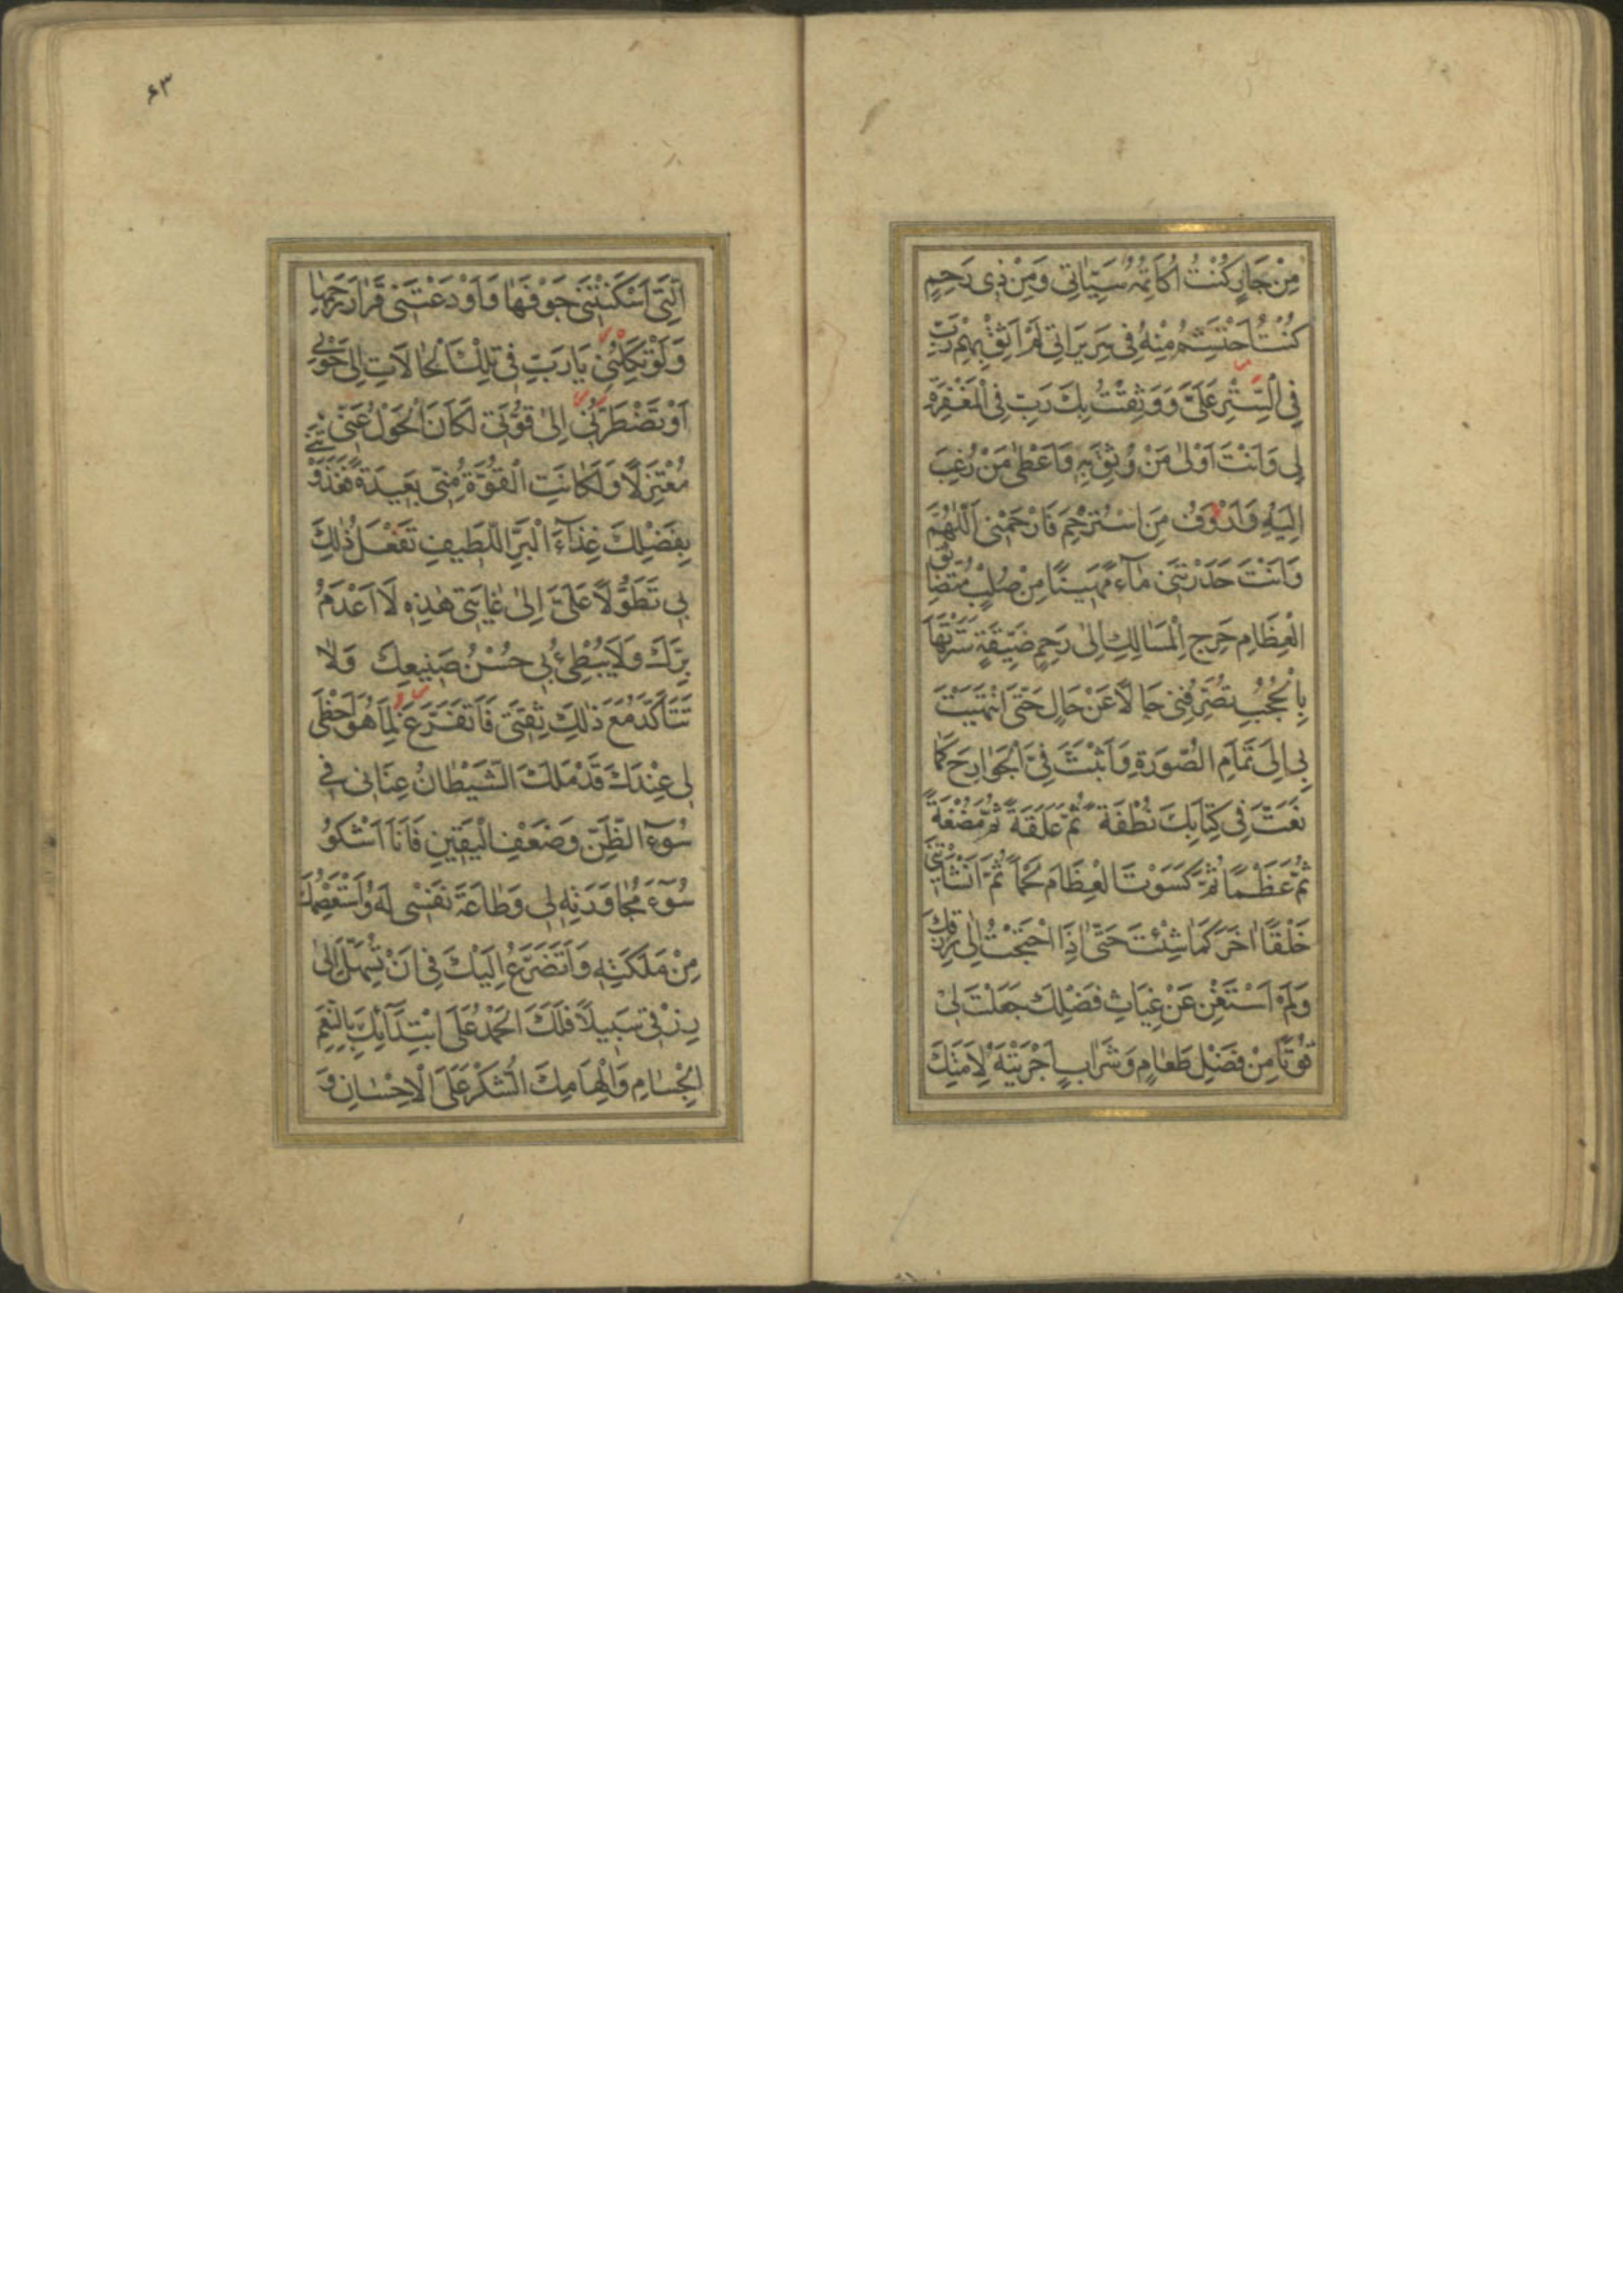 مِنْ جَارٍ كُنْتُ اُكَاتِمُهُ سَيِّئَاتِي وَمِنْ ذِي رَحِمٍ
كُنْتُ اَحْتَشِمُ مِنْهُ فِي سَرِيرَاتِي لَمْ اَثِقْ بِهِمْ رَبِّ
فِي السِّتْرِ عَلَيَّ وَوَثِقْتُ بِكَ رَبِّ فِي الْمَغْفِرَةِ
لِي وَاَنْتَ اَوْلٰى مَنْ وُثِقَ بِهِ وَاَعْطٰى مَنْ رُغِبَ
اِلَيْهِ وَاَرْوَفُ مَنِ اسْتُرْحِمَ فَارْحَمْنِي اَللّٰهُمَّ
وَاَنْتَ حَدَرْتَنِي مَاءً مَهِينًا مِنْ صُلْبٍ مُتَضَايِقِ
الْعِظَامِ حَرِجِ الْمَسَالِكِ اِلٰى رَحِمٍ ضَيِّقَةٍ سَتَرْتَهَا
بِالْحُجُبِ تُصَرِّفُنِي حَالًا عَنْ حَالٍ حَتَّى انْتَهَيْتَ
بِي اِلَى تَمَامِ الصُّورَةِ وَاَثْبَتَّ فِيَّ الْجَوَارِحَ كَمَا
نَعَتَّ فِي كِتَابِكَ نُطْفَةً ثُمَّ عَلَقَةً ثُمَّ مُضْغَةً
ثُمَّ عَظْمًا ثُمَّ كَسَوْتَ الْعِظَامَ لَحْمًا ثُمَّ اَنْشَأْتَنِي
خَلْقًا اٰخَرَ كَمَا شِئْتَ حَتّٰى اِذَا احْتَجْتُ اِلٰى رِزْقِكَ
وَلَمْ اَسْتَغْنِ عَنْ غِيَاثِ فَضْلِكَ جَعَلْتَ لِي
قُوتًا مِنْ فَضْلِ طَعَامٍ وَشَرَابٍ اَجْرَيْتَهُ لِاَمَتِكَ
۶۳
الَّتِي اَسْكَنْتَنِي جَوْفَهَا وَاَوْدَعْتَنِي قَرَارَ رَحِمِهَا
وَلَوْ تَكِلْنِي يَا رَبِّ فِي تِلْكَ الْحَالَاتِ اِلٰى حَوْلِي
اَوْ تَضْطَرُّنِي اِلٰى قُوَّتِي لَكَانَ الْحَوْلُ عَنِّي
مُعْتَزِلًا وَلَكَانَتِ الْقُوَّةُ مِنِّي بَعِيدَةً فَغَذَوْتَنِي
بِفَضْلِكَ غِذَاءَ الْبَرِّ اللَّطِيفِ تَفْعَلُ ذٰلِكَ
بِي تَطَوُّلًا عَلَيَّ اِلٰى غَايَتِي هٰذِهِ لَا اَعْدَمُ
بِرَّكَ وَلَا يُبْطِئُ بِي حُسْنُ صَنِيعِكَ وَلَا
تَتَاَكَّدُ مَعَ ذٰلِكَ ثِقَتِي فَاَتَفَرَّغَ لِمَا هُوَ اَحْظٰى
لِي عِنْدَكَ قَدْ مَلَكَ الشَّيْطَانُ عِنَانِي فِي
سُوءِ الظَّنِّ وَضَعْفِ الْيَقِينِ فَاَنَا اَشْكُو
سُوءَ مُجَاوَرَتِهِ لِي وَطَاعَةَ نَفْسِي لَهُ وَاَسْتَعْصِمُكَ
مِنْ مَلَكَتِهِ وَاَتَضَرَّعُ اِلَيْكَ فِي اَنْ تُسَهِّلَ اِلٰى
رِزْقِي سَبِيلًا فَلَكَ الْحَمْدُ عَلَى ابْتِدَائِكَ بِالنِّعَمِ
الْجِسَامِ وَاِلْهَامِكَ الشُّكْرَ عَلَى الْاِحْسَانِ وَ